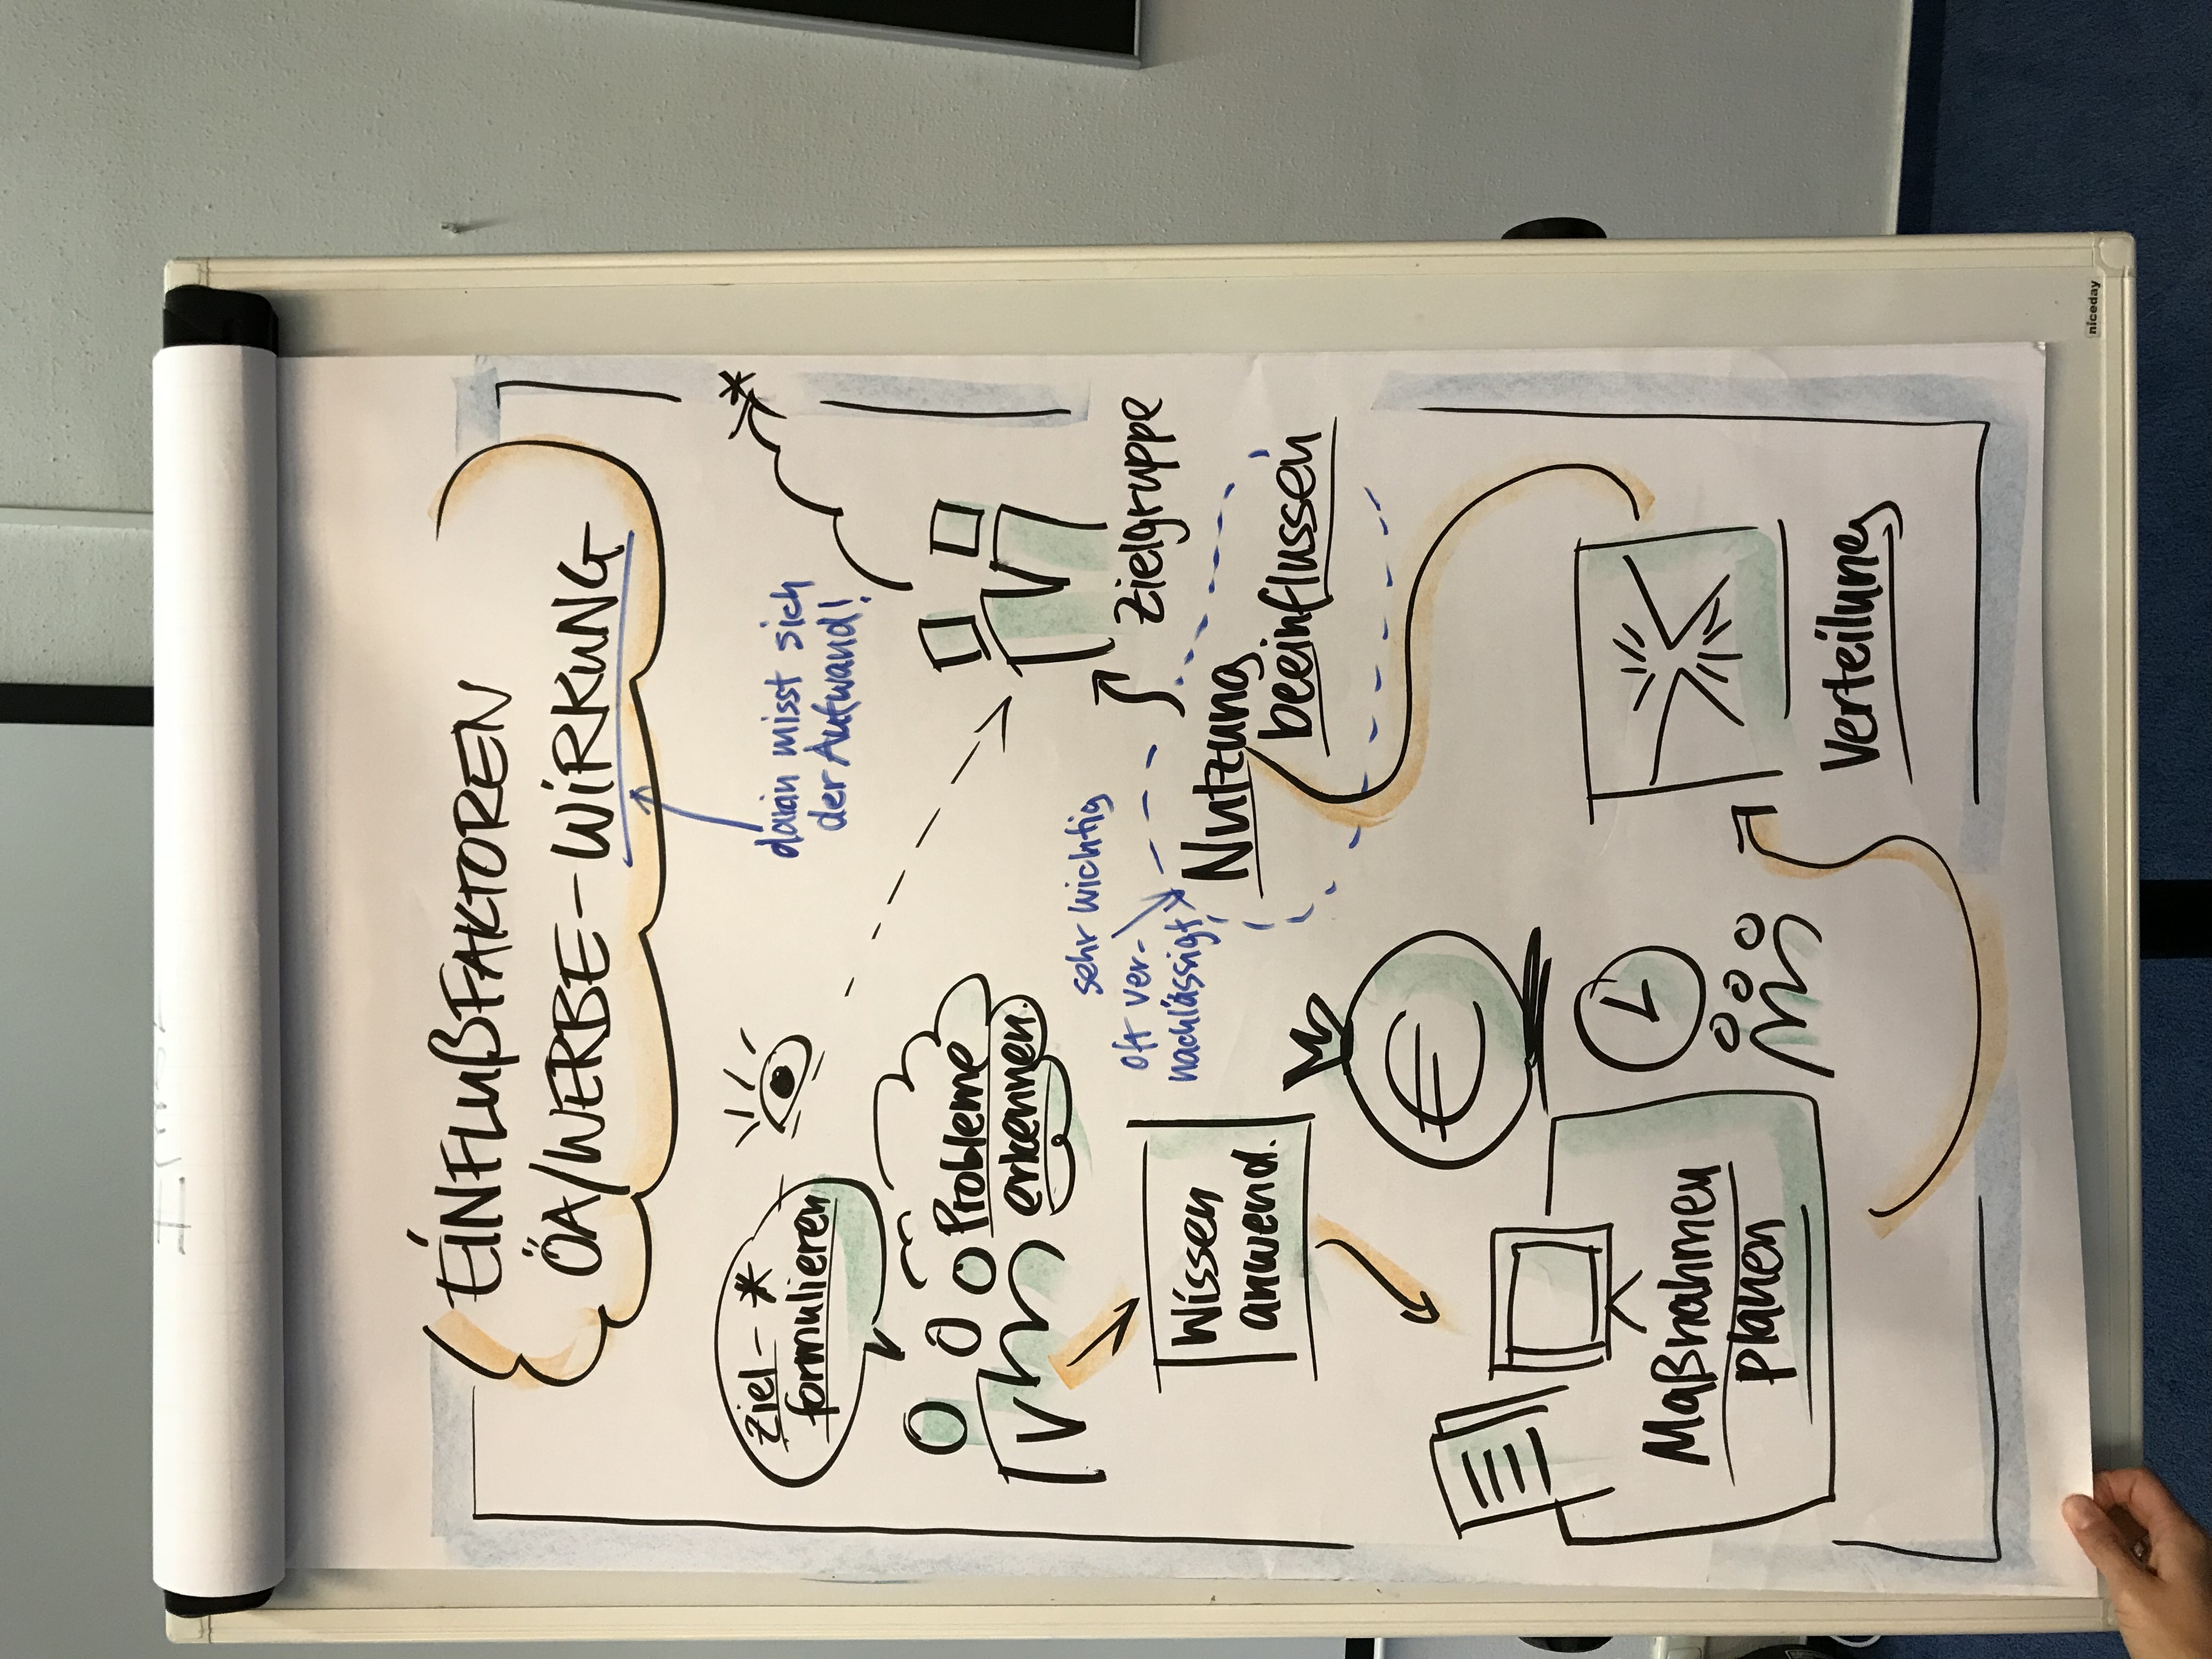 EINFLUßFAKTOREN
ÖA/WERBE-WIRKUNG
daran misst sich
der Aufwand!
Ziel-*
formulieren
*
Probleme
erkennen
Zielgruppe
sehr wichtig
oft ver-
nachlässigt
Nutzung
beeinflussen
Wissen
anwend.
€
Maßnahmen
planen
Verteilung
niceday